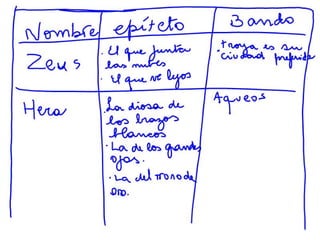 Nombre epíteto Bando
Zeus
· El que juntar
las nubes
· El que ve lejos
· troya es su
ciudad preferida
Hera
La diosa de
los brazos
blancos
· La de los grandes
ojos.
· La del trono de
oro.
Aqueos